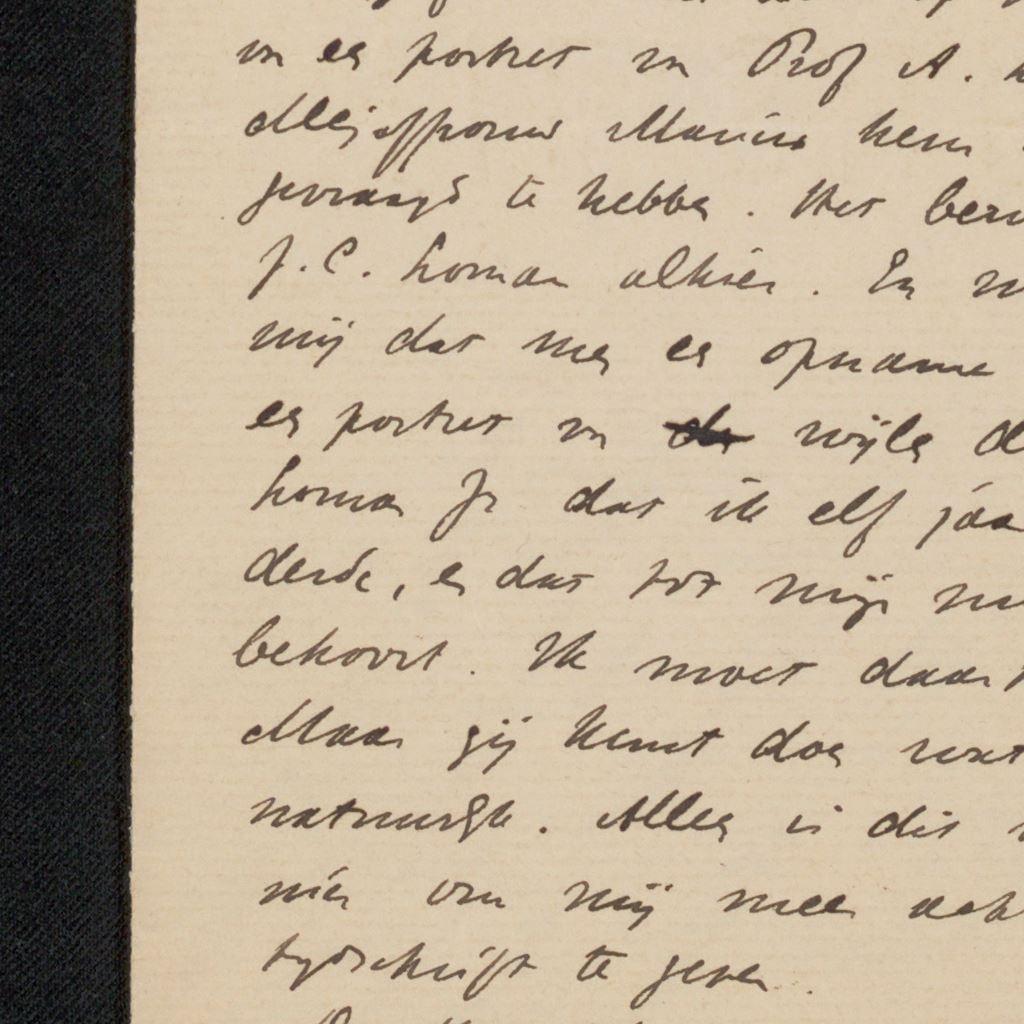 van een portret van Prof A.
Mejuffrouw Marius hem
gevraagd te hebben. Het beru
J.C. Loman alhier. En
mij dat men een opname
een portret van wijlen
Loman Jr dat ik elf jaa
derde, en dat tot mijn
behoort. Ik moet daar
Maar gij kunt doen wat
natuurlijk. Alleen is dit
niet om mij meer
tijdschrift te geven.